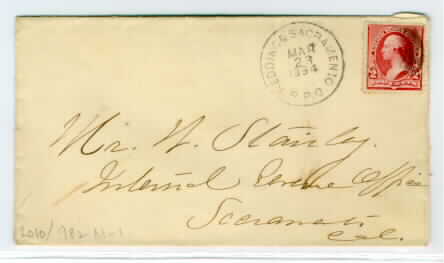 REDDING & SACRAMENTO
MAR
23
1894
R.P.O.
2 2
Mr. W. Stanley.
Internal Revenue Office
Sacramento
Cal.
2010/982 M-1